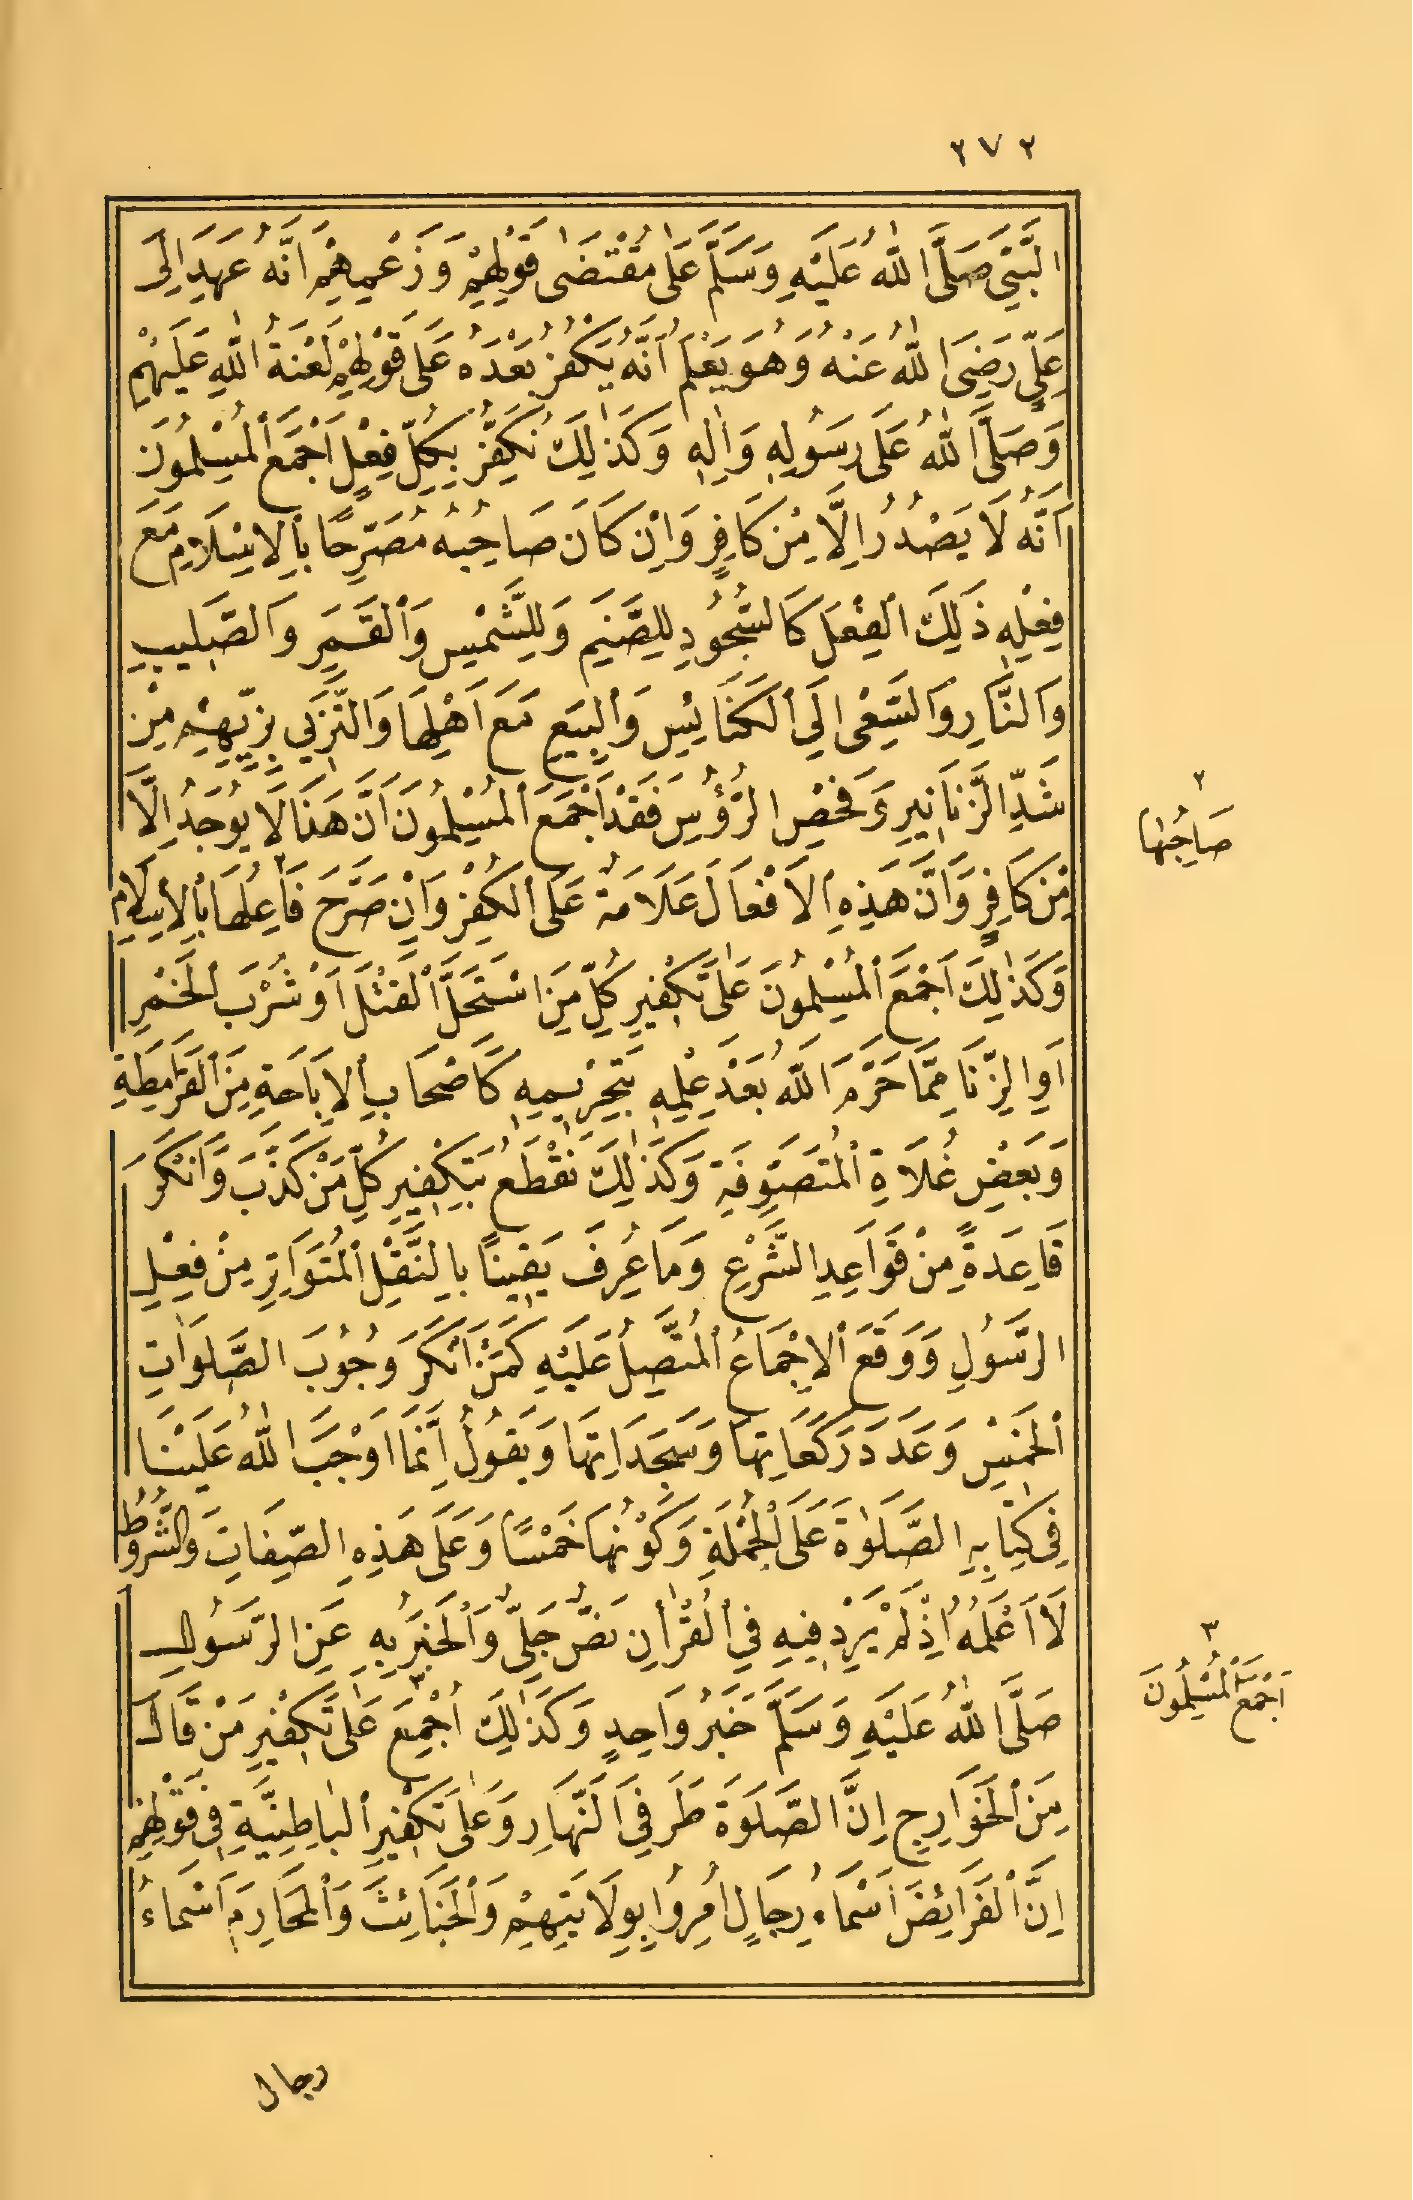 ٢٧٢
النَّبِيِّ صَلَّى اللّٰهُ عَلَيْهِ وَسَلَّمَ عَلٰى مُقْتَضٰى قَوْلِهِمْ وَزَعْمِهِمْ اَنَّهُ عَهِدَ اِلٰى
عَلِيٍّ رَضِيَ اللّٰهُ عَنْهُ وَهُوَ يَعْلَمُ اَنَّهُ يَكْفُرُ بَعْدَهُ عَلٰى قَوْلِهِمْ لَعْنَةُ اللّٰهِ عَلَيْهِمْ
وَصَلَّى اللّٰهُ عَلٰى رَسُولِهِ وَاٰلِهِ وَكَذٰلِكَ نُكَفِّرُ بِكُلِّ فِعْلٍ اَجْمَعَ الْمُسْلِمُونَ
اَنَّهُ لَا يَصْدُرُ اِلَّا مِنْ كَافِرٍ وَاِنْ كَانَ صَاحِبُهُ مُصَرِّحًا بِالْاِسْلَامِ مَعَ
فِعْلِهِ ذَلِكَ الْفِعْلَ كَالسُّجُودِ لِلصَّنَمِ وَلِلشَّمْسِ وَالْقَمَرِ وَالصَّلِيبِ
وَالنَّارِ وَالسَّعْىِ اِلَى الْكَنَائِسِ وَالْبِيَعِ مَعَ اَهْلِهَا وَالتَّزَيِّي بِزِيِّهِمْ مِنْ
شَدِّ الزَّنَانِيرِ وَفَحْصِ الرُّؤُسِ فَقَدْ اَجْمَعَ الْمُسْلِمُونَ اَنَّ هَذَا لَا يُوجَدُ اِلَّا
٢
صَاحِبُهَا
مِنْ كَافِرٍ وَاَنَّ هَذِهِ الْاَفْعَالَ عَلَامَةٌ عَلَى الْكُفْرِ وَاِنْ صَرَّحَ فَاعِلُهَا بِالْاِسْلَامِ
وَكَذٰلِكَ اَجْمَعَ الْمُسْلِمُونَ عَلٰى تَكْفِيرِ كُلِّ مَنِ اسْتَحَلَّ الْقَتْلَ اَوْ شُرْبَ الْخَمْرِ
اَوِ الزِّنَا مِمَّا حَرَّمَ اللّٰهُ بَعْدَ عِلْمِهِ بِتَحْرِيمِهِ كَاَصْحَابِ الْاِبَاحَةِ مِنَ الْقَرَامِطَةِ
وَبَعْضِ غُلَاةِ الْمُتَصَوِّفَةِ وَكَذٰلِكَ نَقْطَعُ بِتَكْفِيرِ كُلِّ مَنْ كَذَّبَ وَاَنْكَرَ
قَاعِدَةً مِنْ قَوَاعِدِ الشَّرْعِ وَمَا عُرِفَ يَقِينًا بِالنَّقْلِ الْمُتَوَاتِرِ مِنْ فِعْلِ
الرَّسُولِ وَوَقَعَ الْاِجْمَاعُ الْمُتَّصِلُ عَلَيْهِ كَمَنْ اَنْكَرَ وُجُوبَ الصَّلَوَاتِ
الْخَمْسِ وَعَدَدَ رَكَعَاتِهَا وَسَجَدَاتِهَا وَيَقُولُ اِنَّمَا اَوْجَبَ اللّٰهُ عَلَيْنَا
فِى كِتَابِهِ الصَّلٰوةَ عَلَى الْجُمْلَةِ وَكَوْنُهَا خَمْسًا وَعَلَى هَذِهِ الصِّفَاتِ وَالشُّرُوطِ
لَا اَعْلَمُهُ اِذْ لَمْ يَرِدْ فِيهِ فِي الْقُرْاٰنِ نَصٌّ جَلِيٌّ وَالْخَبَرُ بِهِ عَنِ الرَّسُولِ
صَلَّى اللّٰهُ عَلَيْهِ وَسَلَّمَ خَبَرُ وَاحِدٍ وَكَذٰلِكَ اُجْمِعَ عَلٰى تَكْفِيرِ مَنْ قَالَ
٣
اَجْمَعَ الْمُسْلِمُونَ
مِنَ الْخَوَارِجِ اِنَّ الصَّلَوةَ طَرَفِيَ النَّهَارِ وَعَلٰى تَكْفِيرِ الْبَاطِنِيَّةِ فِى قَوْلِهِمْ
اِنَّ الْفَرَائِضَ اَسْمَاءُ رِجَالٍ اُمِرُوا بِوِلَايَتِهِمْ وَالْخَبَائِثَ وَالْمَحَارِمَ اَسْمَاءُ
رجال